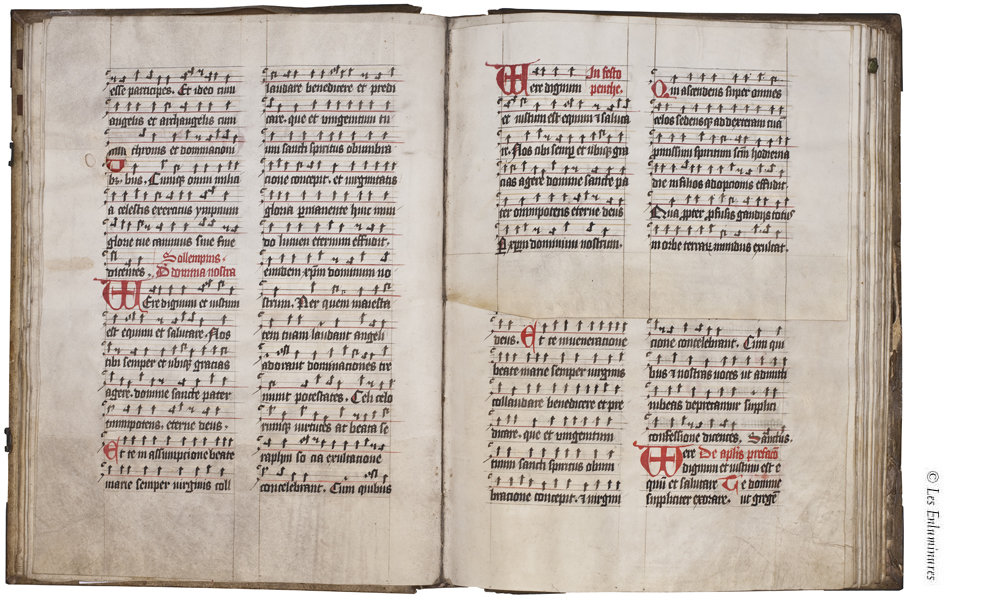 esse participes. Et ideo cum
angelis et archangelis cum
thronis et dominacioni
bus. Cumque omni milici
a celestis exercitus ympnum
glorie tue canimus sine fine
dicentes. Sollempnis.
D domina nostra
Were dignum et iustum
est equum et salutare. Nos
tibi semper et ubique gracias
agere. domine sancte pater
omnipotens. eterne deus.
Et te in assumpcione beate
marie semper virginis coll
laudare benedicere et predi
care. que et unigenitum tu
um sancti spiritus obumbra
cione concepit. et virginitatis
gloria permanente huic mun
do lumen eternum effudit.
eiusdem xpm dominum no
strum. Per quem maiesta
tem tuam laudant angeli
adorant dominaciones tre
munt potestates. Celi celo
rumque virtutes ac beata se
raphin so cia exultacione
concelebrant. Cum quibus
Were dignum In festo
penthe.
et iustum est equum et saluta
re. Nos tibi semper et ubique gra
cias agere domine sancte pa
ter omnipotens eterne deus
Per xpm dominum nostrum.
Qui ascendens super omnes
celos sedensque ad dexteram tua
promissum spiritum sanctum hodierna
die in filios adopcionis effudit.
Qua propter profusis gaudiis totus
in orbe terrarum mundus exultat.
deus. Et te in veneracione
beate marie semper virginis
collaudare benedicere et pre
dicare. que et unigenitum
tuum sancti spiritus obum
bracione concepit. et virgini
cione concelebrant. Cum qui
bus et nostras voces ut admitti
iubeas deprecamur supplici
confessione dicentes. Sanctus.
Were De aplis prefacio
dignum et iustum est e
quum et salutare Te domine
suppliciter exorare. ut gregem
© Les Enluminures